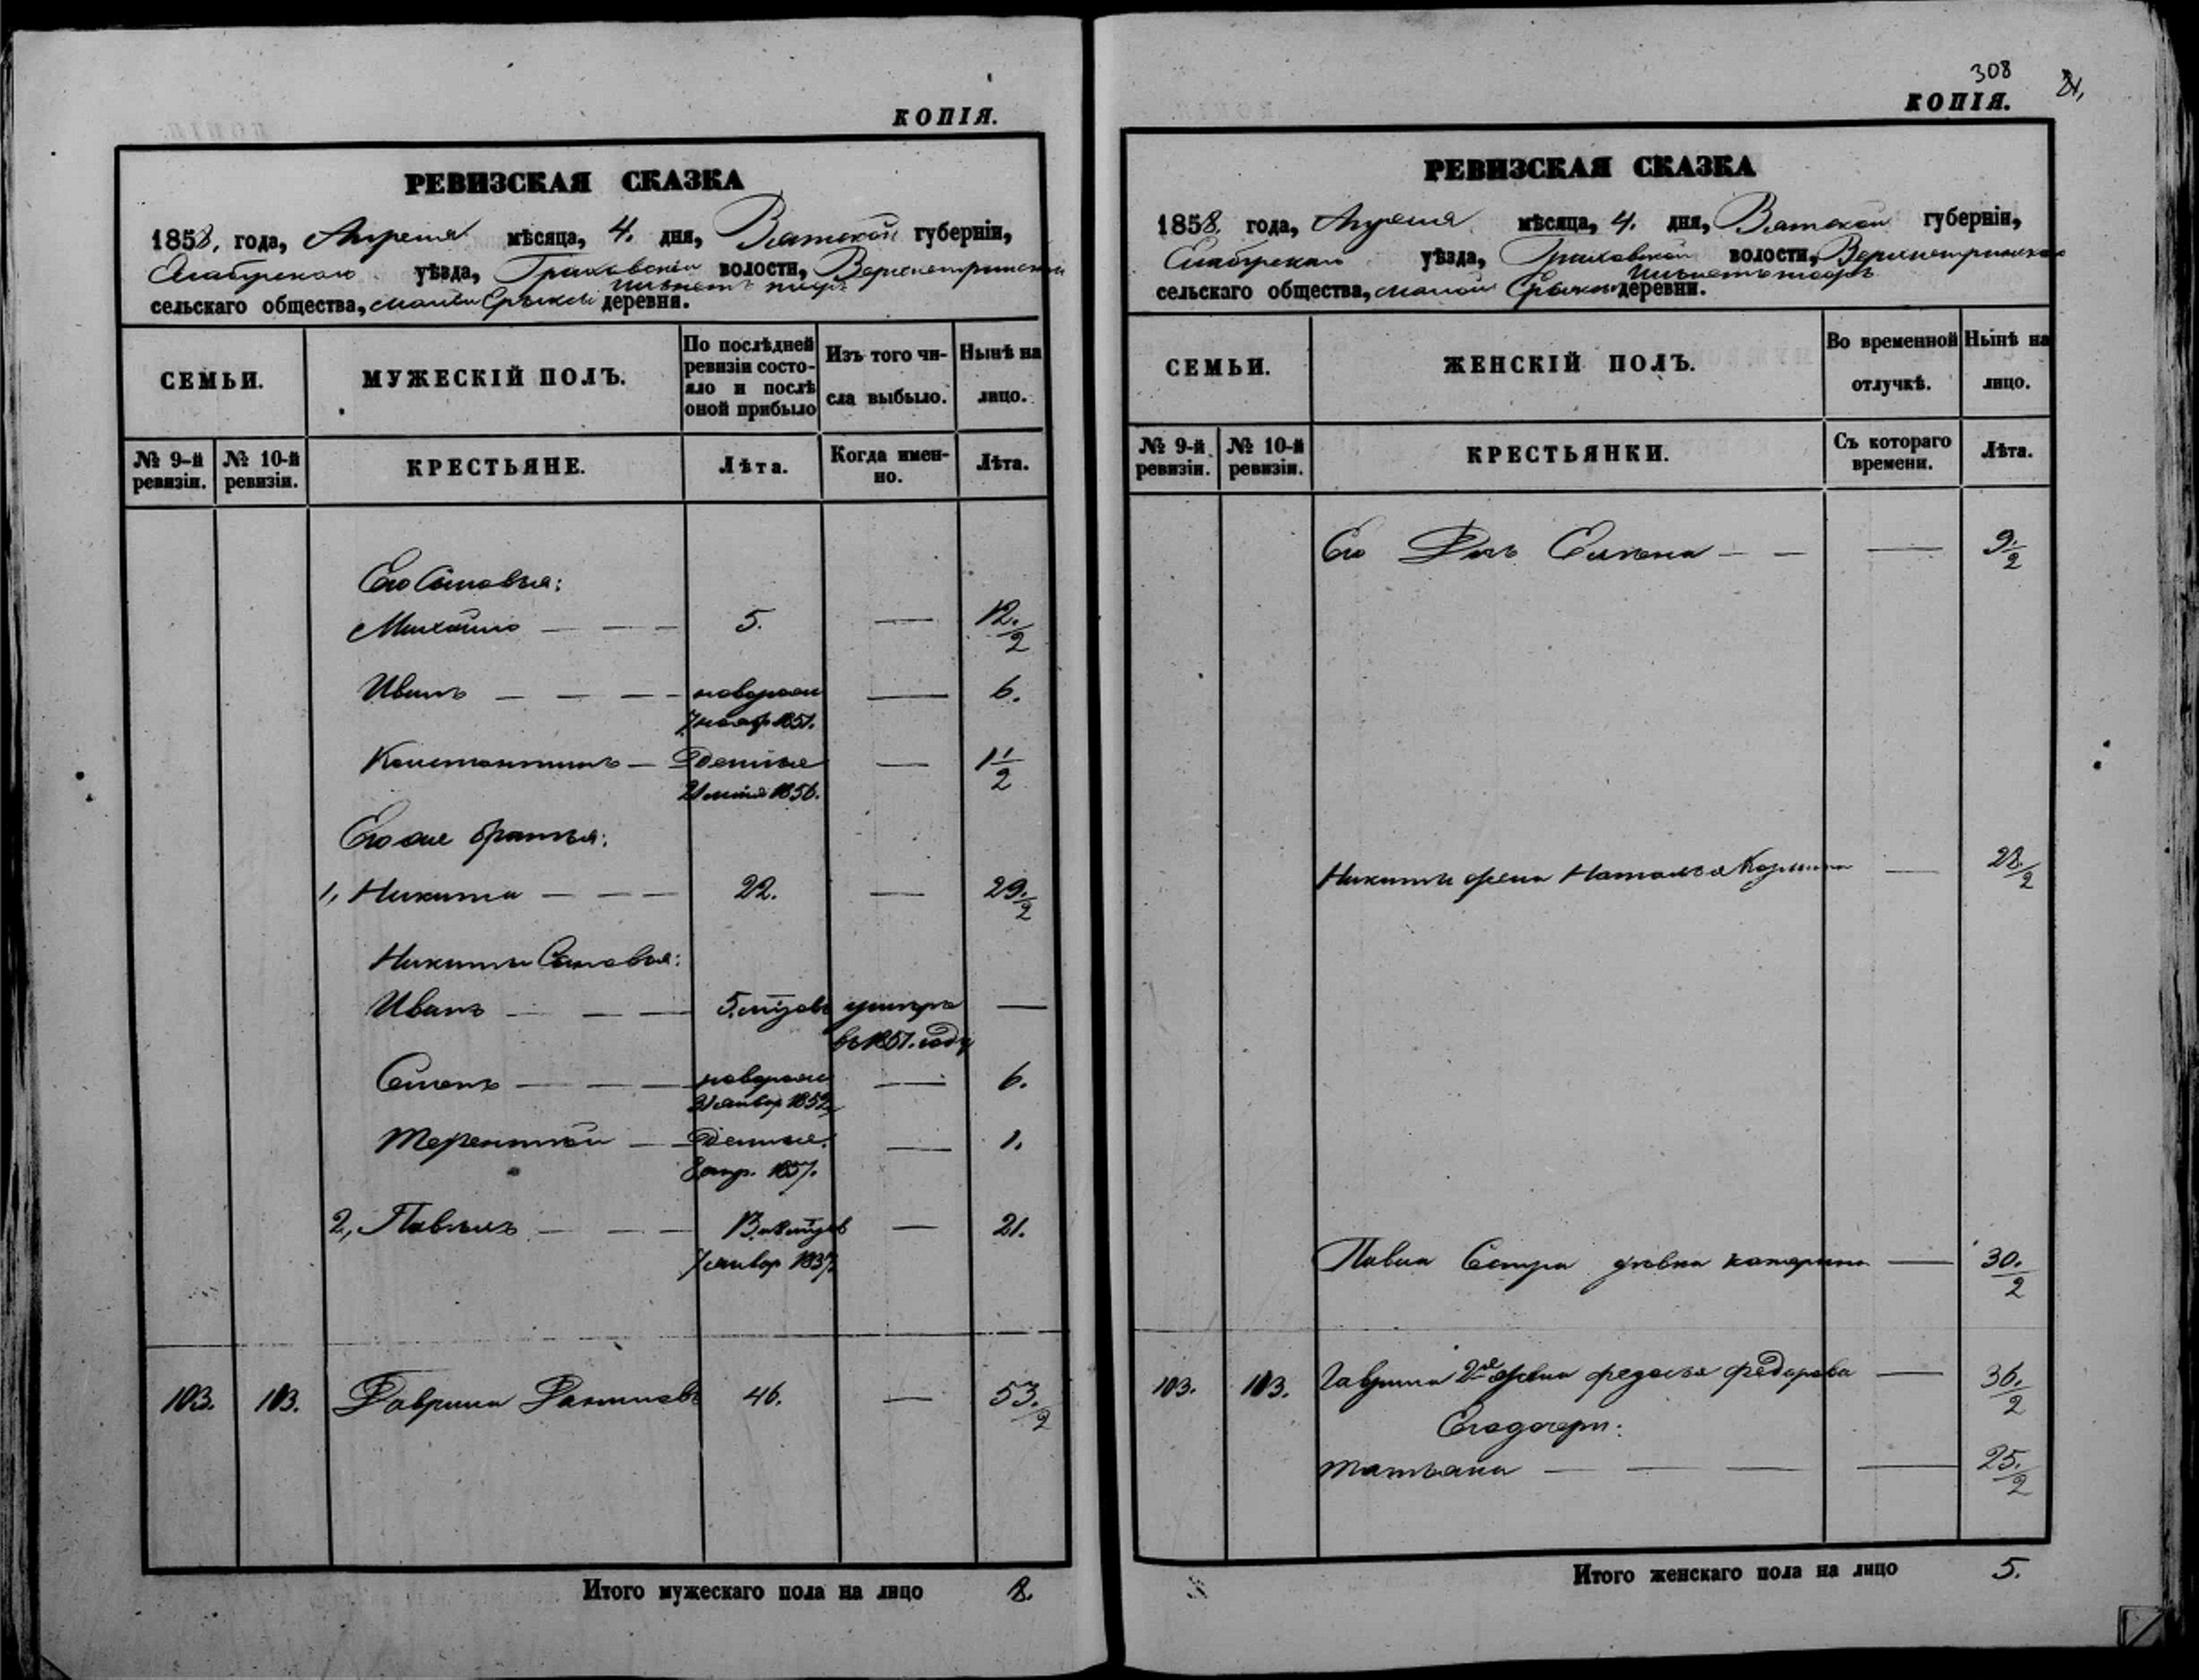 КОПІЯ.
РЕВИЗСКАЯ СКАЗКА
1858. года, Апреля мѣсяца, 4. дня, Вятской губерніи,
Елабужского уѣзда, Граховской волости,
сельскаго общества, малой деревни.
СЕМЬИ.
МУЖЕСКІЙ ПОЛЪ.
По послѣдней ревизіи состояло и послѣ оной прибыло
Изъ того числа выбыло.
Нынѣ на лицо.
№ 9-й ревизіи.
№ 10-й ревизіи.
КРЕСТЬЯНЕ.
Лѣта.
Когда именно.
Лѣта.
Его Сыновья:
Михайло — — — 5. — 12 1/2
Иванъ — — — новорож — 6.
7 нояб 1851.
Константинъ — — 1 1/2
1856.
Его же братья:
1, Никита — — — 22. — 29 1/2
Никиты Сыновья:
Иванъ — — — 5. умеръ —
въ 1851. году
Семенъ — — — новорож — 6.
январ 1852
Терентий — — 1.
8 апр. 1857.
2, Павелъ — — — — 21.
7 январ 1837
103. 103. Гаврила 46. — 53 1/2
Итого мужескаго пола на лицо 8.
308
КОПІЯ.
РЕВИЗСКАЯ СКАЗКА
1858. года, Апреля мѣсяца, 4. дня, Вятской губерніи,
Елабужского уѣзда, Граховской волости,
сельскаго общества, малой деревни.
СЕМЬИ.
ЖЕНСКІЙ ПОЛЪ.
Во временной отлучкѣ.
Нынѣ на лицо.
№ 9-й ревизіи.
№ 10-й ревизіи.
КРЕСТЬЯНКИ.
Съ котораго времени.
Лѣта.
Его Дочь Елена — — — 9 1/2
Никиты жена Наталья — 28 1/2
Павла Сестра девка катерина — 30 1/2
103. 103. Гаврила 2я жена федосья федорова — 36 1/2
Его дочери:
татьяна — — — — 25 1/2
Итого женскаго пола на лицо 5.